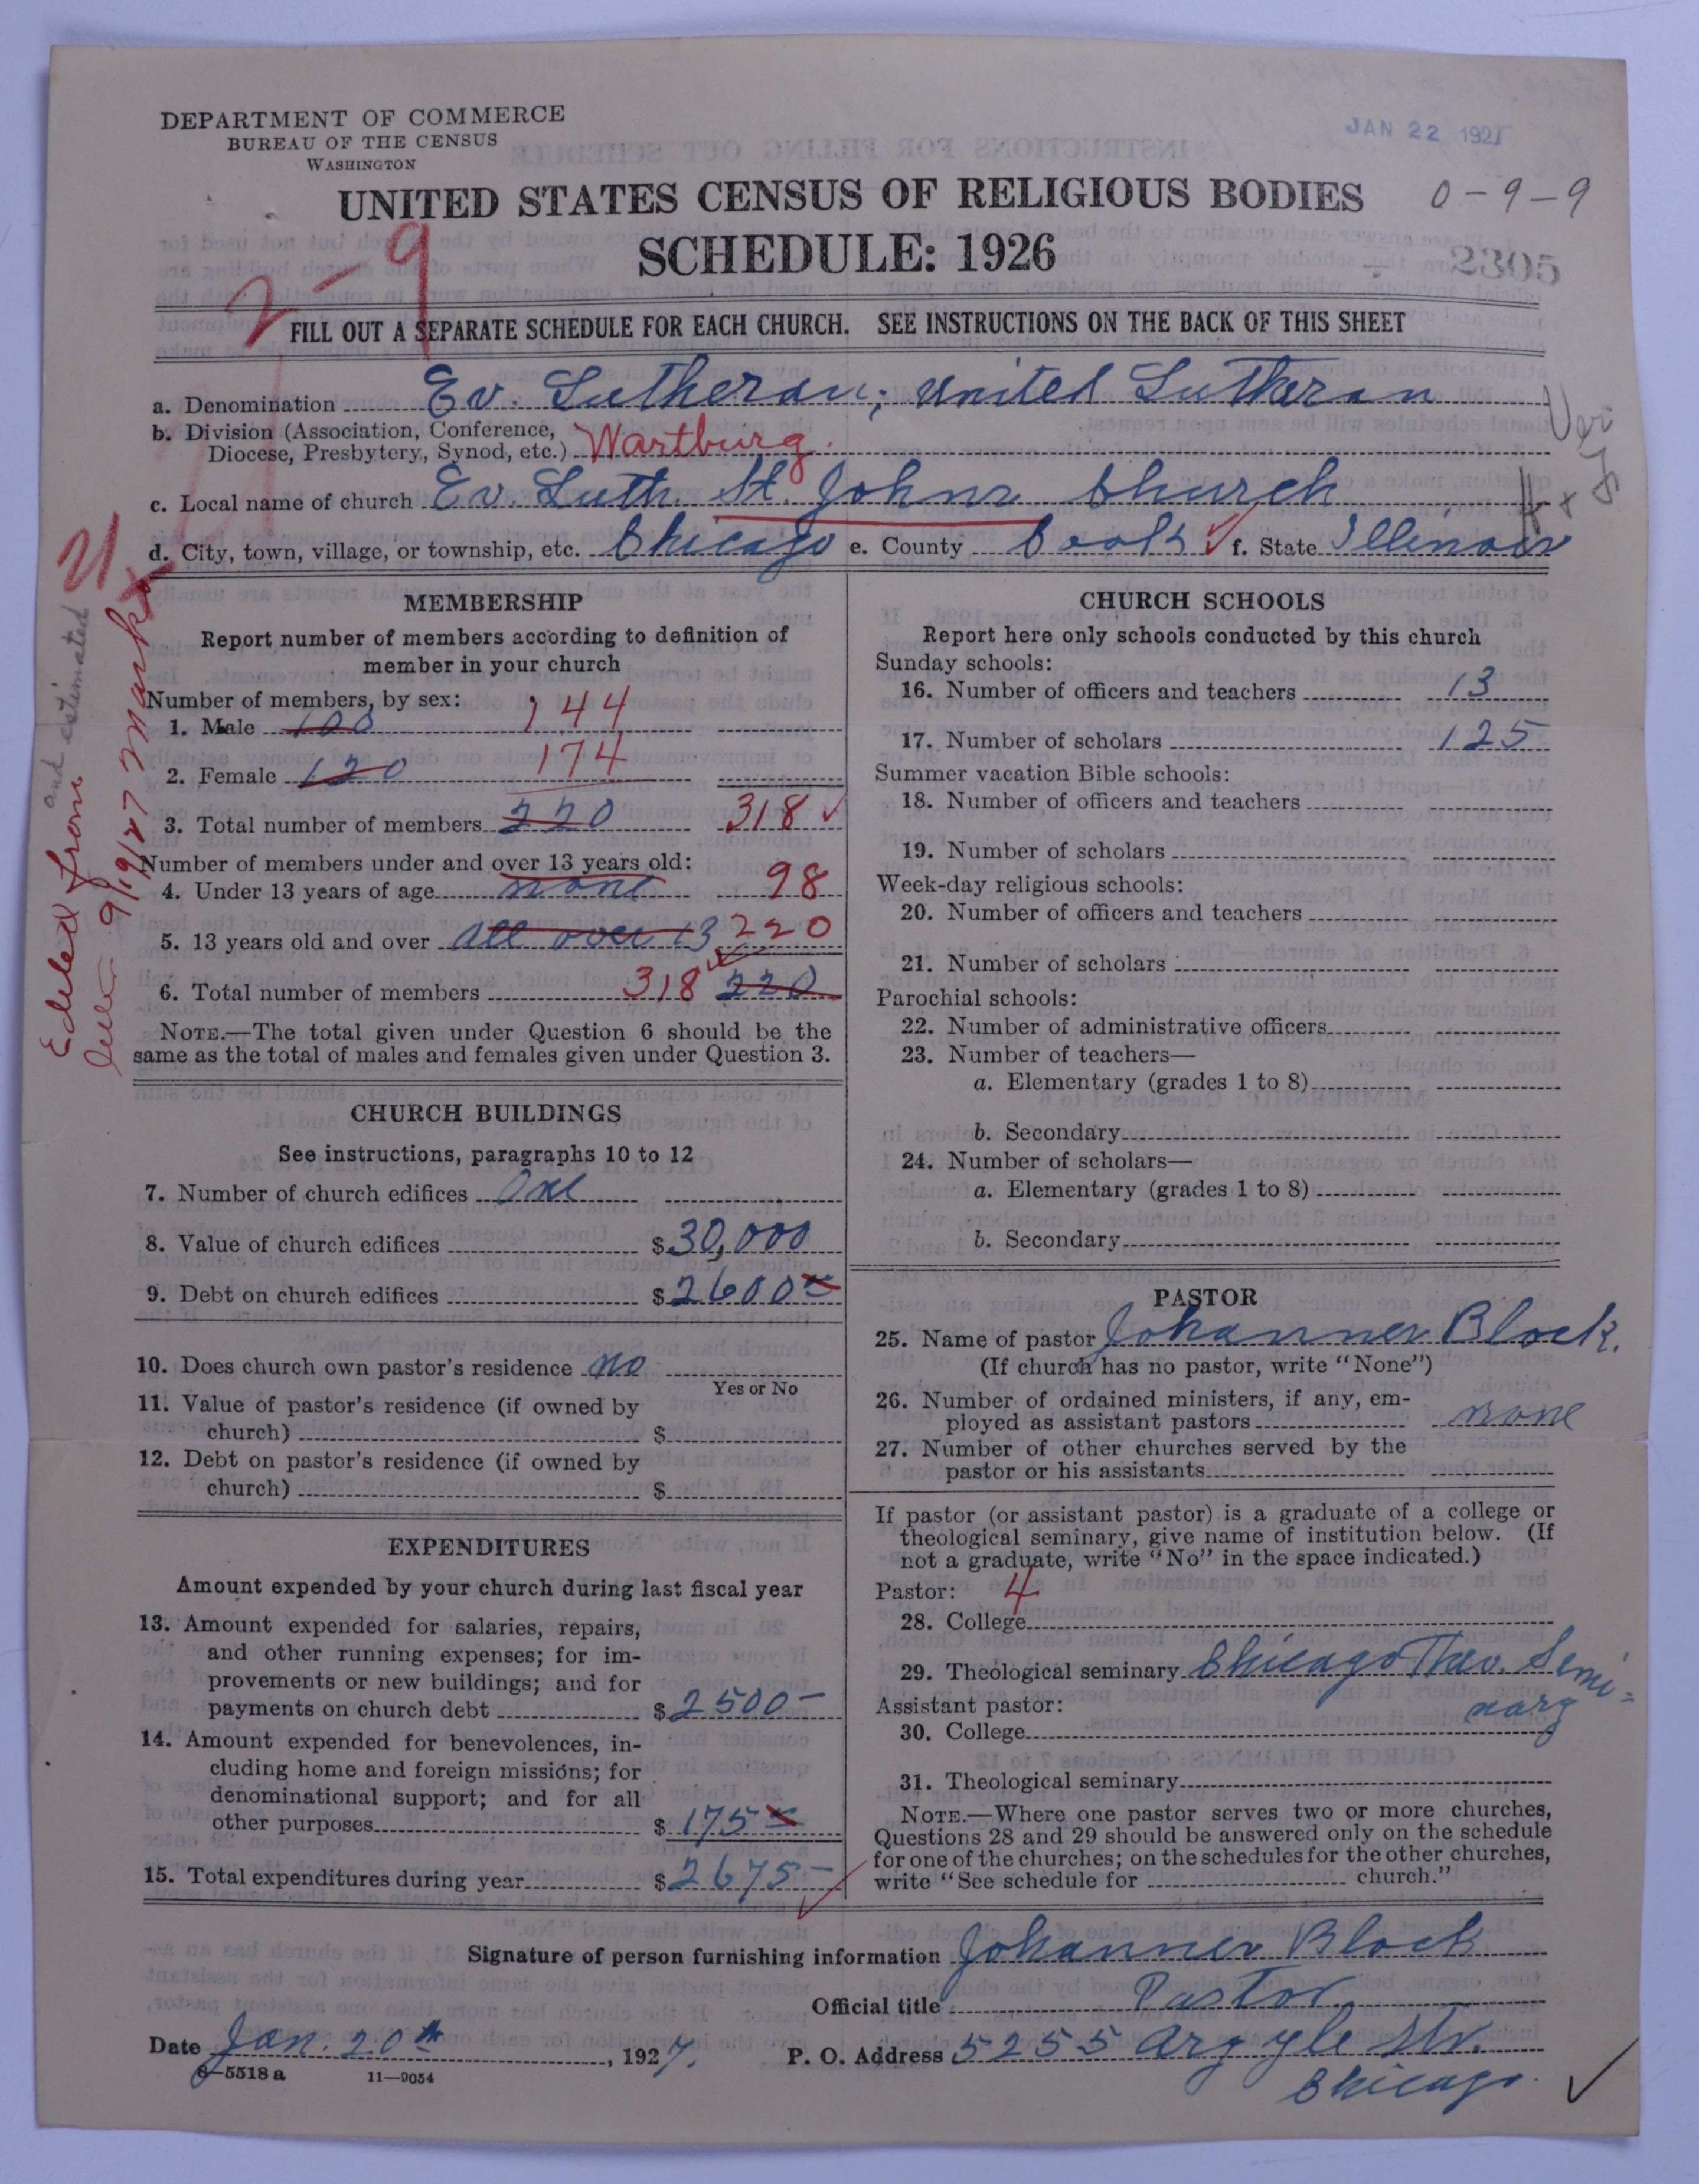 DEPARTMENT OF COMMERCE
BUREAU OF THE CENSUS
WASHINGTON
JAN 22 1927
UNITED STATES CENSUS OF RELIGIOUS BODIES
0-9-9
SCHEDULE: 1926
2305
2-9
FILL OUT A SEPARATE SCHEDULE FOR EACH CHURCH. SEE INSTRUCTIONS ON THE BACK OF THIS SHEET
a. Denomination Ev. Lutheran; United Lutheran
b. Division (Association, Conference,
Diocese, Presbytery, Synod, etc.) Wartburg.
c. Local name of church Ev. Luth. St. Johns Church
d. City, town, village, or township, etc. Chicago e. County Cook f. State Illinois
Edited from
9/9/27 Marks
and estimated
MEMBERSHIP
Report number of members according to definition of
member in your church
Number of members, by sex:
1. Male 100 144
2. Female 120 174
3. Total number of members 220 318
Number of members under and over 13 years old:
4. Under 13 years of age none 98
5. 13 years old and over all over 13 220
6. Total number of members 318 220
NOTE.—The total given under Question 6 should be the
same as the total of males and females given under Question 3.
CHURCH BUILDINGS
See instructions, paragraphs 10 to 12
7. Number of church edifices One
8. Value of church edifices $30,000
9. Debt on church edifices $2600
10. Does church own pastor's residence no
Yes or No
11. Value of pastor's residence (if owned by
church) $
12. Debt on pastor's residence (if owned by
church) $
EXPENDITURES
Amount expended by your church during last fiscal year
13. Amount expended for salaries, repairs,
and other running expenses; for im-
provements or new buildings; and for
payments on church debt $2500-
14. Amount expended for benevolences, in-
cluding home and foreign missions; for
denominational support; and for all
other purposes $175
15. Total expenditures during year $2675-
CHURCH SCHOOLS
Report here only schools conducted by this church
Sunday schools:
16. Number of officers and teachers 13
17. Number of scholars 125
Summer vacation Bible schools:
18. Number of officers and teachers
19. Number of scholars
Week-day religious schools:
20. Number of officers and teachers
21. Number of scholars
Parochial schools:
22. Number of administrative officers
23. Number of teachers—
a. Elementary (grades 1 to 8)
b. Secondary
24. Number of scholars—
a. Elementary (grades 1 to 8)
b. Secondary
PASTOR
25. Name of pastor Johannes Block.
(If church has no pastor, write "None")
26. Number of ordained ministers, if any, em-
ployed as assistant pastors none
27. Number of other churches served by the
pastor or his assistants
If pastor (or assistant pastor) is a graduate of a college or
theological seminary, give name of institution below. (If
not a graduate, write "No" in the space indicated.)
Pastor: 4
28. College
29. Theological seminary Chicago Theo. Semi-
nary
Assistant pastor:
30. College
31. Theological seminary
NOTE.—Where one pastor serves two or more churches,
Questions 28 and 29 should be answered only on the schedule
for one of the churches; on the schedules for the other churches,
write "See schedule for church."
Signature of person furnishing information Johannes Block
Official title Pastor
Date Jan. 20th, 1927. P. O. Address 5255 Argyle Str.
Chicago.
8-5518a 11-9054